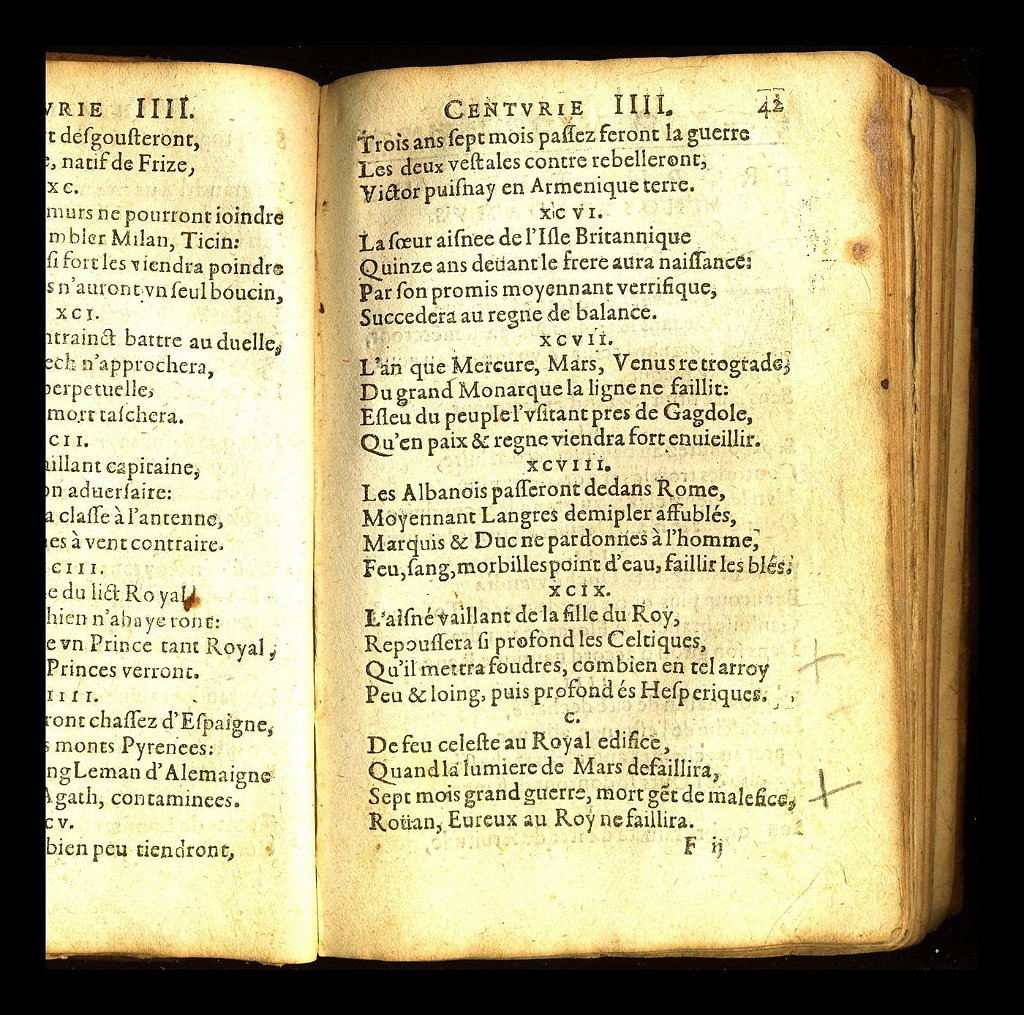 VRIE IIII.
t desgousteront,
, natif de Frize,
XC.
murs ne pourront ioindre
mbler Milan, Ticin:
si fort les viendra poindre
s n'auront vn seul boucin,
XCI.
ntrainct battre au duelle,
ech n'approchera,
perpetuelle,
mort taschera.
CII.
aillant capitaine,
on aduersaire:
a classe à l'antenne,
es à vent contraire.
CIII.
e du lict Royal
hien n'abayeront:
e vn Prince tant Royal,
Princes verront.
IIII.
ront chassez d'Espaigne,
s monts Pyrenees:
ng Leman d'Alemaigne
Agath, contaminees.
CV.
bien peu tiendront,
CENTVRIE IIII. 42
Trois ans sept mois passez feront la guerre
Les deux vestales contre rebelleront,
Victor puisnay en Armenique terre.
XCVI.
La sœur aisnee de l'Isle Britannique
Quinze ans deuant le frere aura naissance:
Par son promis moyennant verrifique,
Succedera au regne de balance.
XCVII.
L'an que Mercure, Mars, Venus retrograde,
Du grand Monarque la ligne ne faillit:
Esleu du peuple l'vsitant pres de Gagdole,
Qu'en paix & regne viendra fort enuieillir.
XCVIII.
Les Albanois passeront dedans Rome,
Moyennant Langres demipler affublés,
Marquis & Duc ne pardonnes à l'homme,
Feu, sang, morbilles point d'eau, faillir les blés.
XCIX.
L'aisné vaillant de la fille du Roy,
Repoussera si profond les Celtiques,
Qu'il mettra foudres, combien en tel arroy
Peu & loing, puis profond és Hesperiques.
C.
De feu celeste au Royal edifice,
Quand la lumiere de Mars defaillira,
Sept mois grand guerre, mort gẽt de malefice,
Roüan, Eureux au Roy ne faillira.
F ij